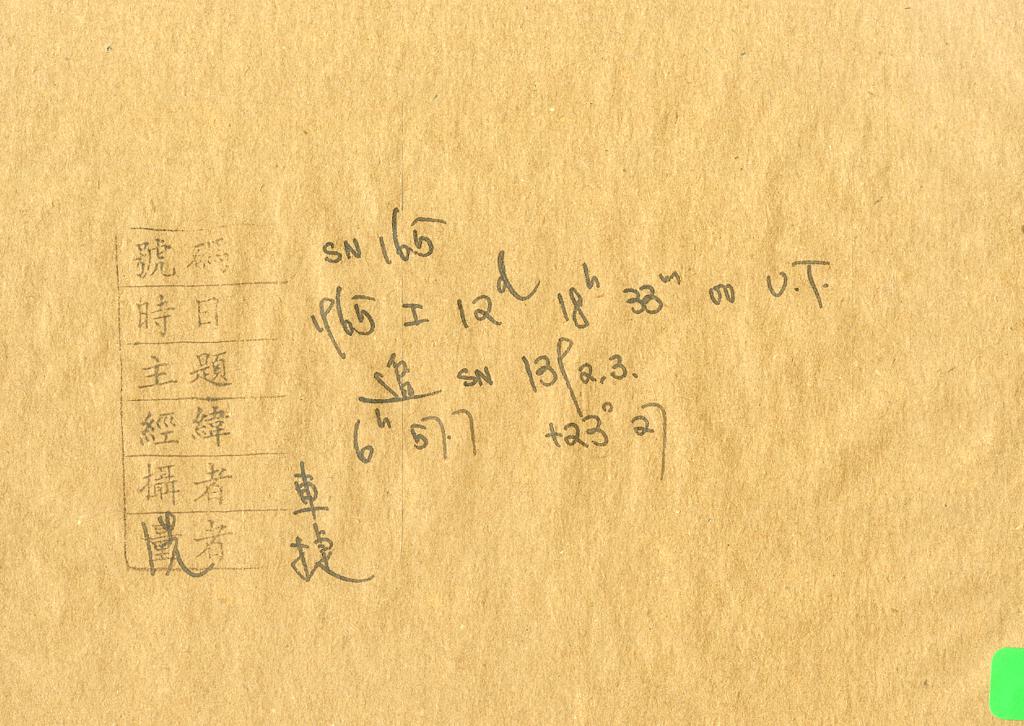 號碼 SN 165
時日 1965 I 12d 18h 33m 00 U.T.
主題 SN 139 2.3.
經緯 6h 57.7 +23° 27
攝者 車
者